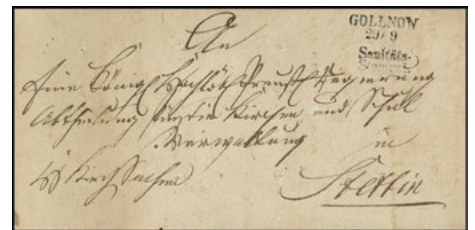 An
GOLLNOW
29/9
Sanitäts-
Stempel
Eine Königl Hochlöbl Preuß Regierung
Abtheilung für die Kirchen und Schul
Verwaltung
in
Kirch Sachen
Stettin